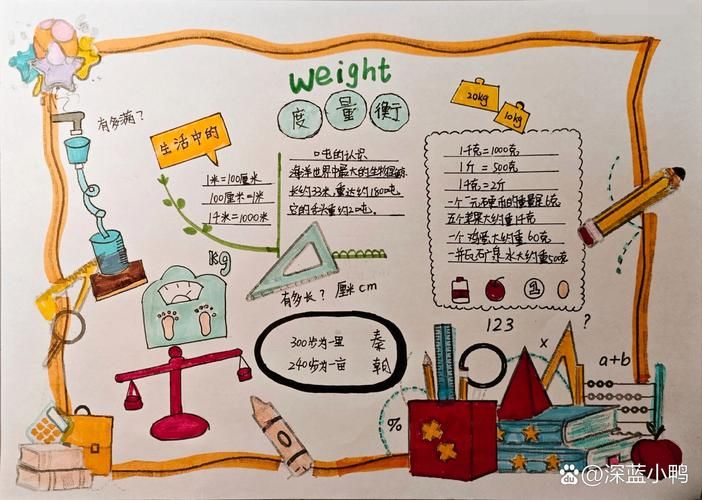 weight
度量衡
20kg
10kg
有多满?
生活中的
1米=100厘米
100厘米=1米
1千米=1000米
吨的认识
海洋世界中最大的生物蓝鲸
长约33米,重达约180吨,
它的舌头重约2吨。
1千克=1000克
1斤=500克
1千克=2斤
一个一元硬币的重量是6克
五个苹果大约重1千克
一个鸡蛋大约重60克
一瓶矿泉水大约重500克
kg
有多长?厘米cm
300步为一里
240步为一亩
秦朝
123
x
?
a+b
%
深蓝小鸭